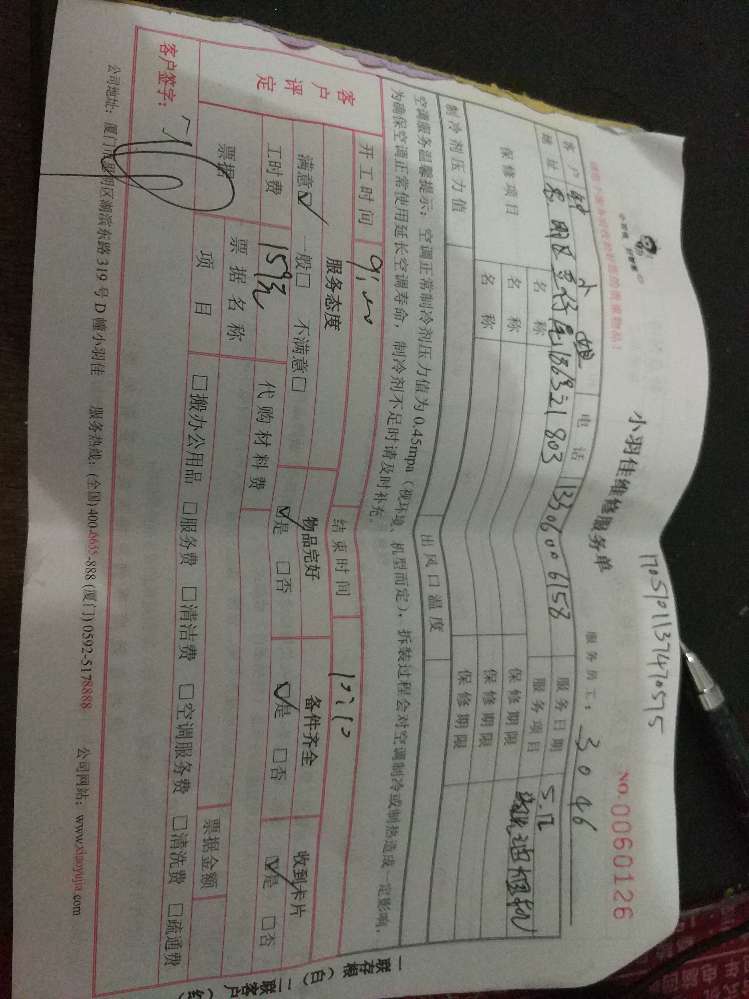 1705101137470575
小羽佳维修服务单
NO. 0060126
服务员工: 3046
小羽佳
客户 小姐 电话 13306006158 服务日期 5.12
地址 思明区 803 服务项目 清洗油烟机
保修项目 名称 保修期限
名称 保修期限
名称 保修期限
制冷剂压力值 出风口温度
空调服务温馨提示: 空调正常制冷剂压力值为 0.45mpa (视环境、机型而定), 拆装过程会对空调制冷或制热造成一定影响,
为确保空调正常使用延长空调寿命, 制冷剂不足时请及时补充。
开工时间 结束时间
客户评定 服务态度 物品完好 备件齐全 收到卡片
满意☑ 一般□ 不满意□ ☑是 □否 ☑是 □否 ☑是 □否
工时费 159元 代购材料费
票据 票据名称 票据金额
项目 □搬办公用品 □服务费 □清洁费 □空调服务费 □清洗费 □疏通费
客户签字:
公司地址: 厦门市思明区湖滨东路 319 号 D 幢小羽佳 服务热线: (全国)400-6655-888 (厦门)0592-5178888 公司网站: www.xiaoyujia.com
一联存根(白) 二联客户